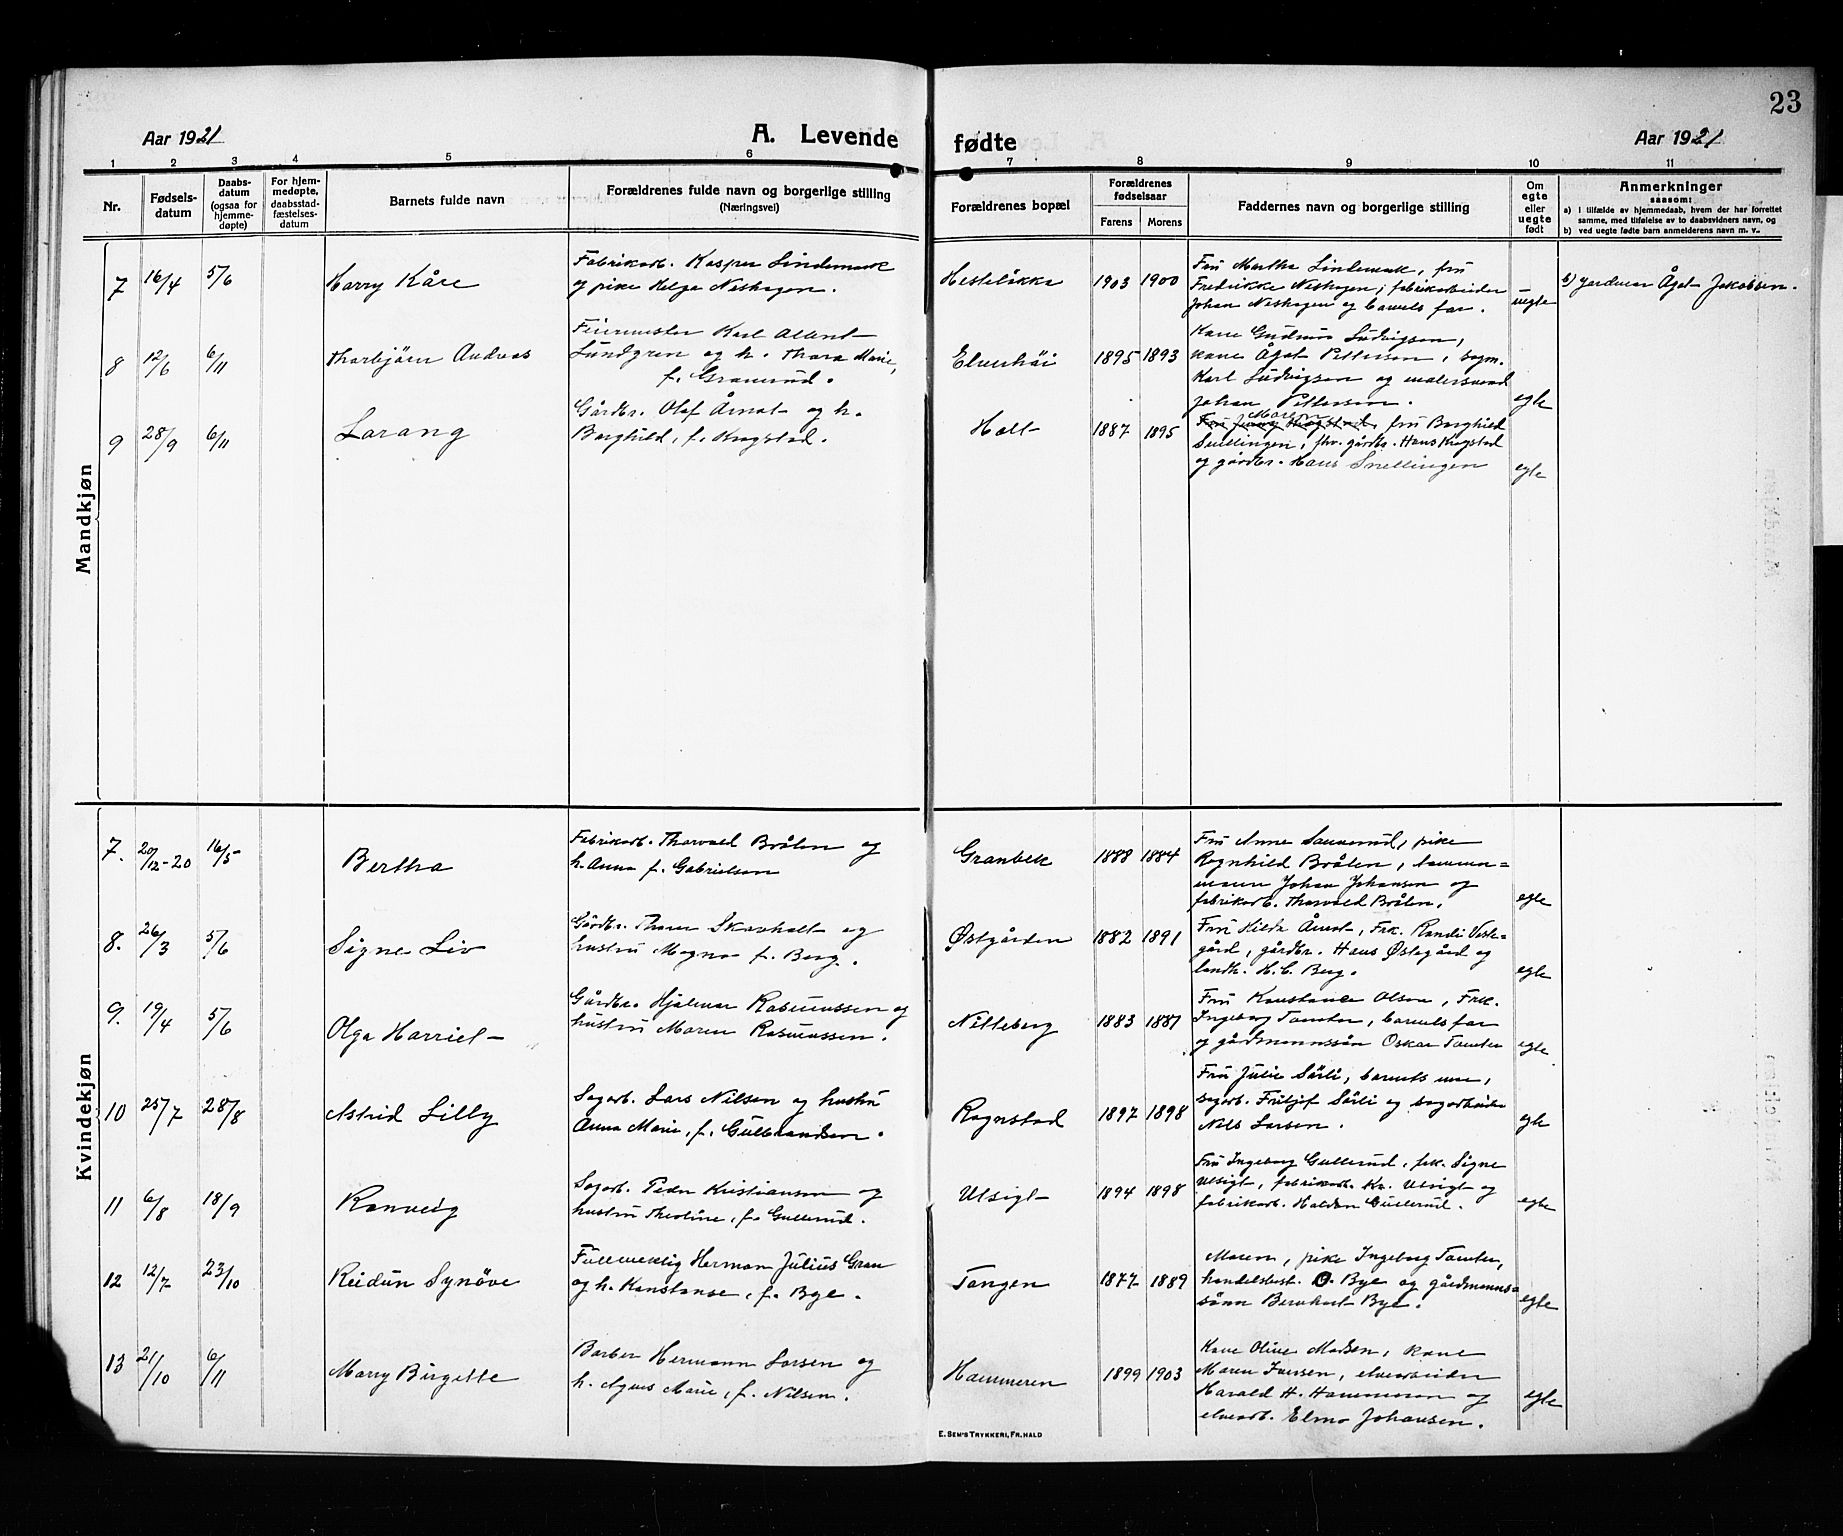 23
Aar 1921
A. Levende fødte
Aar 1921
1 2 3 4 5 6 7 8 9 10 11
Nr.
Fødsels-
datum
Daabs-
datum
(ogsaa for
hjemme-
døpte)
For hjem-
medøpte,
daabsstad-
fæstelses-
datum
Barnets fulde navn
Forældrenes fulde navn og borgerlige stilling
(Næringsvei)
Forældrenes bopæl
Forældrenes
fødselsaar
Farens Morens
Faddernes navn og borgerlige stilling
Om
egte
eller
uegte
født
Anmerkninger
saasom:
a) i tilfælde av hjemmedaab, hvem der har forrettet
samme, med tilføielse av to daabsvidners navn, og
b) ved uegte fødte barn anmelderens navn m. v..
Mandkjøn
7 16/4 5/6 Harry Kåre
Fabrikarb. Kasper Lindemark
og pike Helga Neshagen.
Hesteløkka 1903 1900
Fru Martha Lindemark, fru
Fredrikke Neshagen, fabrikarbeider
Johan Neshagen og barnets far.
uegte
b) jordmor Ågot Jakobsen.
8 12/6 6/11 Thorbjörn Andreas
Feiermester Karl Albert
Lundgren og h. Thora Marie,
f. Gramrud.
Elverhöi 1895 1893
Kone Gudrun Ludvigsen,
kone Ågot Pettersen, sagm.
Karl Ludvigsen og malersvend
Johan Pettersen.
egte
9 28/9 6/11 Lorang
Gårdbr. Olaf Årnot og h.
Borghild, f. Kragstad.
Holt 1887 1895
Moren
Fru Jenny Kragstad, fru Borghild
Snellingen, fhv. gårdbr. Hans Kragstad
og gårdbr. Hans Snellingen
egte
Kvindekjøn
7. 20/12-20 16/5 Bertha
Fabrikarb. Thorvald Bråten og
h. Anna f. Gabrielsen
Granbek 1888 1884
Fru Anne, pike
Ragnhild Bråten, tömmer-
mann Johan Johansen og
fabrikarb. Thorvald Bråten.
egte
8. 26/3 5/6 Signe Liv
Gårdbr. Thorer Skavhalt og
hustru Magna f. Berg.
Østgården 1882 1891
Fru, Frk. Randi Vest-
gård, gårdbr. Hans Østegård og
landh. H. C. Berg.
egte
9. 19/4 5/6 Olga Harriet
Gårdbr. Hjalmar Rasmussen og
hustru Maren Rasmussen.
Nitteberg 1883 1887
Fru Konstance Olsen, Frk.
Ingeborg Tomter, barnets far
og gårdmannssön Oskar Tomter
egte
10 25/7 28/8 Astrid Lilly
Sagarb. Lars Nilsen og hustru
Anna Marie, f. Gulbrandsen.
Rognstad 1897 1898
Fru Julie Sörli, barnets mor,
sagarb. Fritjof Sörli og sagarbeider
Nils Larsen.
egte
11 6/8 18/9 Ranveig
Sagarb. Peder Kristiansen og
hustru Theoline, f. Gullerud.
Utsigt 1894 1898
Fru Ingeborg Gullerud, frk. Signe
Utsigt, fabrikarb. Kr. Utsigt og
fabrikarb. Haldan Gullerud.
egte
12 12/7 23/10 Reidun Synöve
Fuldmektig Herman Julius Gran
og h. Konstanse, f. Bye.
Tangen 1877 1889
Moren, pike Ingeborg Tomter,
handelsbest. O. Bye og gårdmanns-
sönn Bernhart Bye.
egte
13 21/10 6/11 Marry Birgette
Barber Hermann Larsen og
h. Agnes Marie, f. Nilsen.
Hammeren 1899 1903
Kone Olive Madsen, kone
Maren Iversen, elvearbeider
Harald H. Hammeren og
elvearb. Elmo Johansen.
egte
E. SEM'S TRYKKERI, FR.HALD